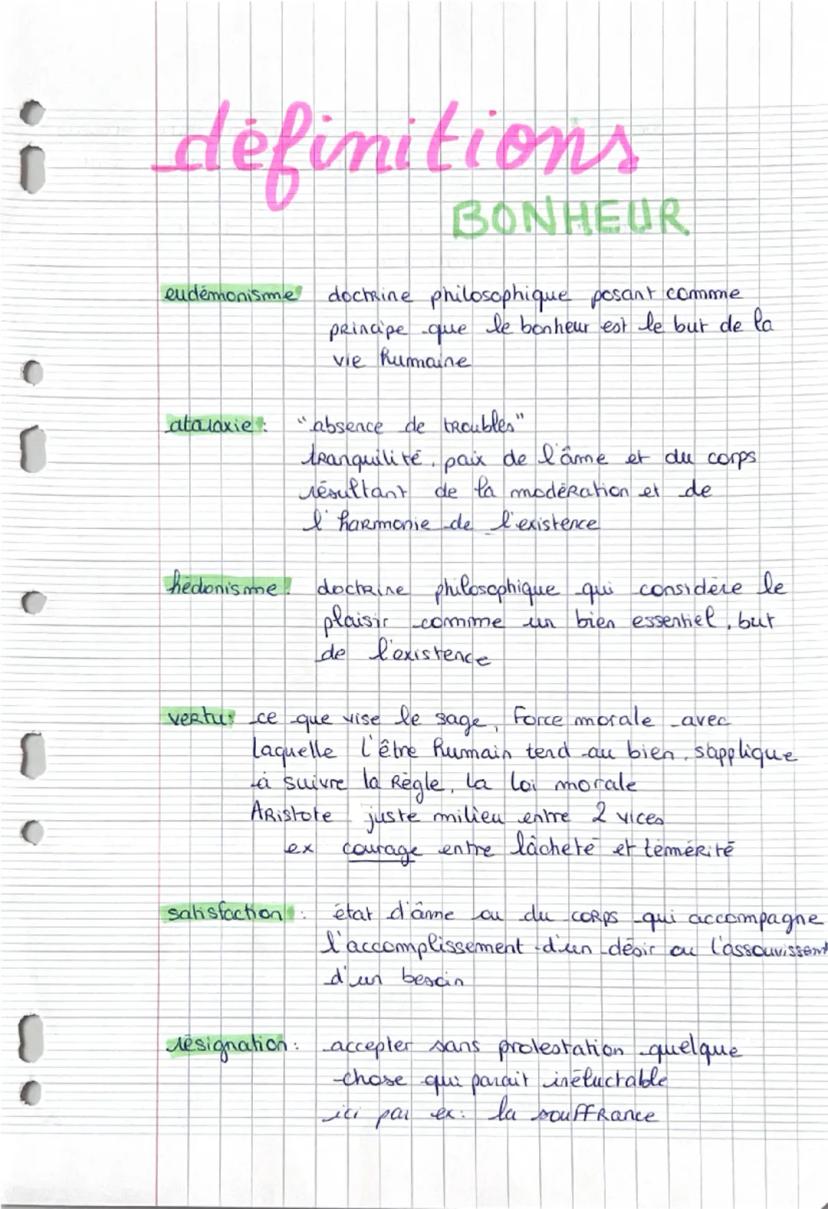 définitions
BONHEUR
eudémonisme : doctrine philosophique posant comme
principe que le bonheur est le but de la
vie humaine
ataraxie : "absence de troubles"
tranquilité, paix de l'âme et du corps
résultant de la modération et de
l'harmonie de l'existence
hédonisme : doctrine philosophique qui considère le
plaisir comme un bien essentiel, but
de l'existence
vertu : ce que vise le sage, Force morale avec
laquelle l'être humain tend au bien, s'applique
à suivre la Règle, la loi morale
Aristote juste milieu entre 2 vices
ex courage entre lâcheté et témérité
satisfaction : état d'âme ou du corps qui accompagne
l'accomplissement d'un désir ou l'assouvissement
d'un besoin
résignation : accepter sans protestation quelque
chose qui parait inéluctable
ici par ex : la souffrance